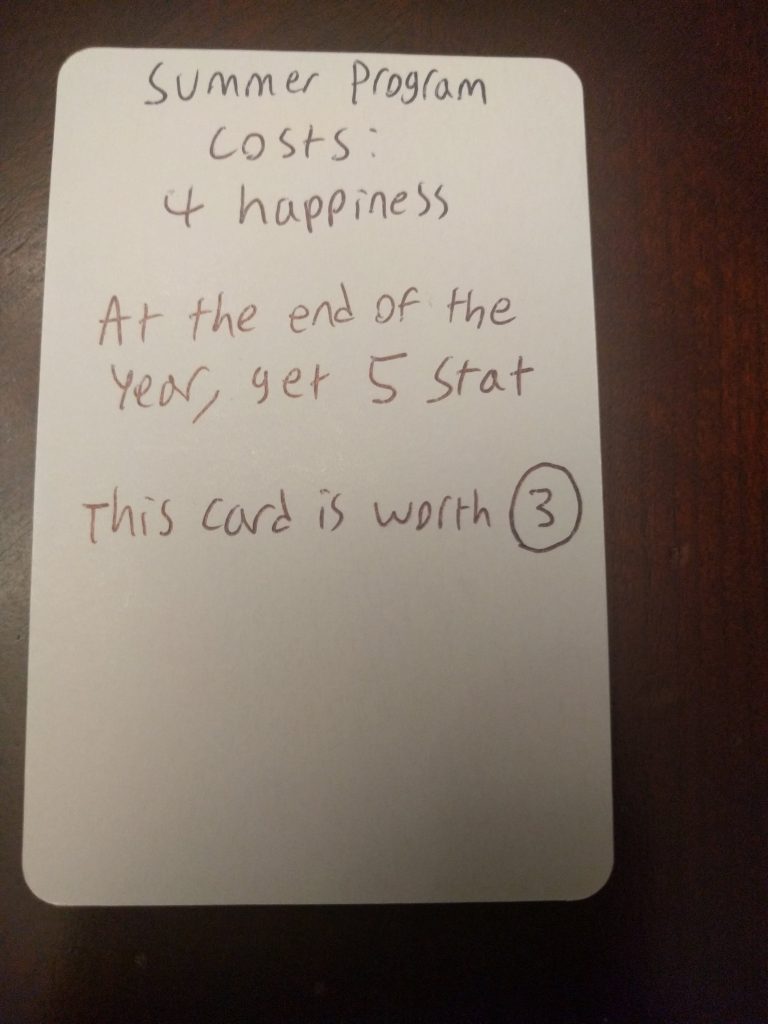 Summer Program
Costs:
4 happiness
At the end of the
Year, get 5 Stat
This card is worth 3